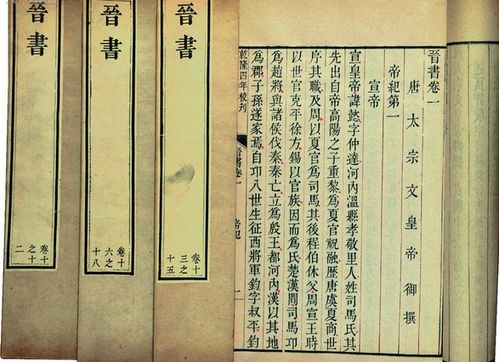 晉書卷一
唐太宗文皇帝御撰
帝紀第一
宣帝
宣皇帝諱懿字仲達河內溫縣孝敬里人姓司馬氏其
先出自帝高陽之子重黎爲夏官祝融歷唐虞夏商世
序其職及周以夏官爲司馬其後程伯休父周宣王時
以世官克平徐方錫以官族因而爲氏楚漢閒司馬卬
爲趙將與諸侯伐秦秦亡立爲殷王都河內漢以其地
爲郡子孫遂家焉自卬八世生征西將軍鈞字叔平鈞
乾隆四年校刊
晉書卷一
一
晉書
卷十
三之
十五
晉書
卷十
六之
十八
晉書
卷十
之十
二